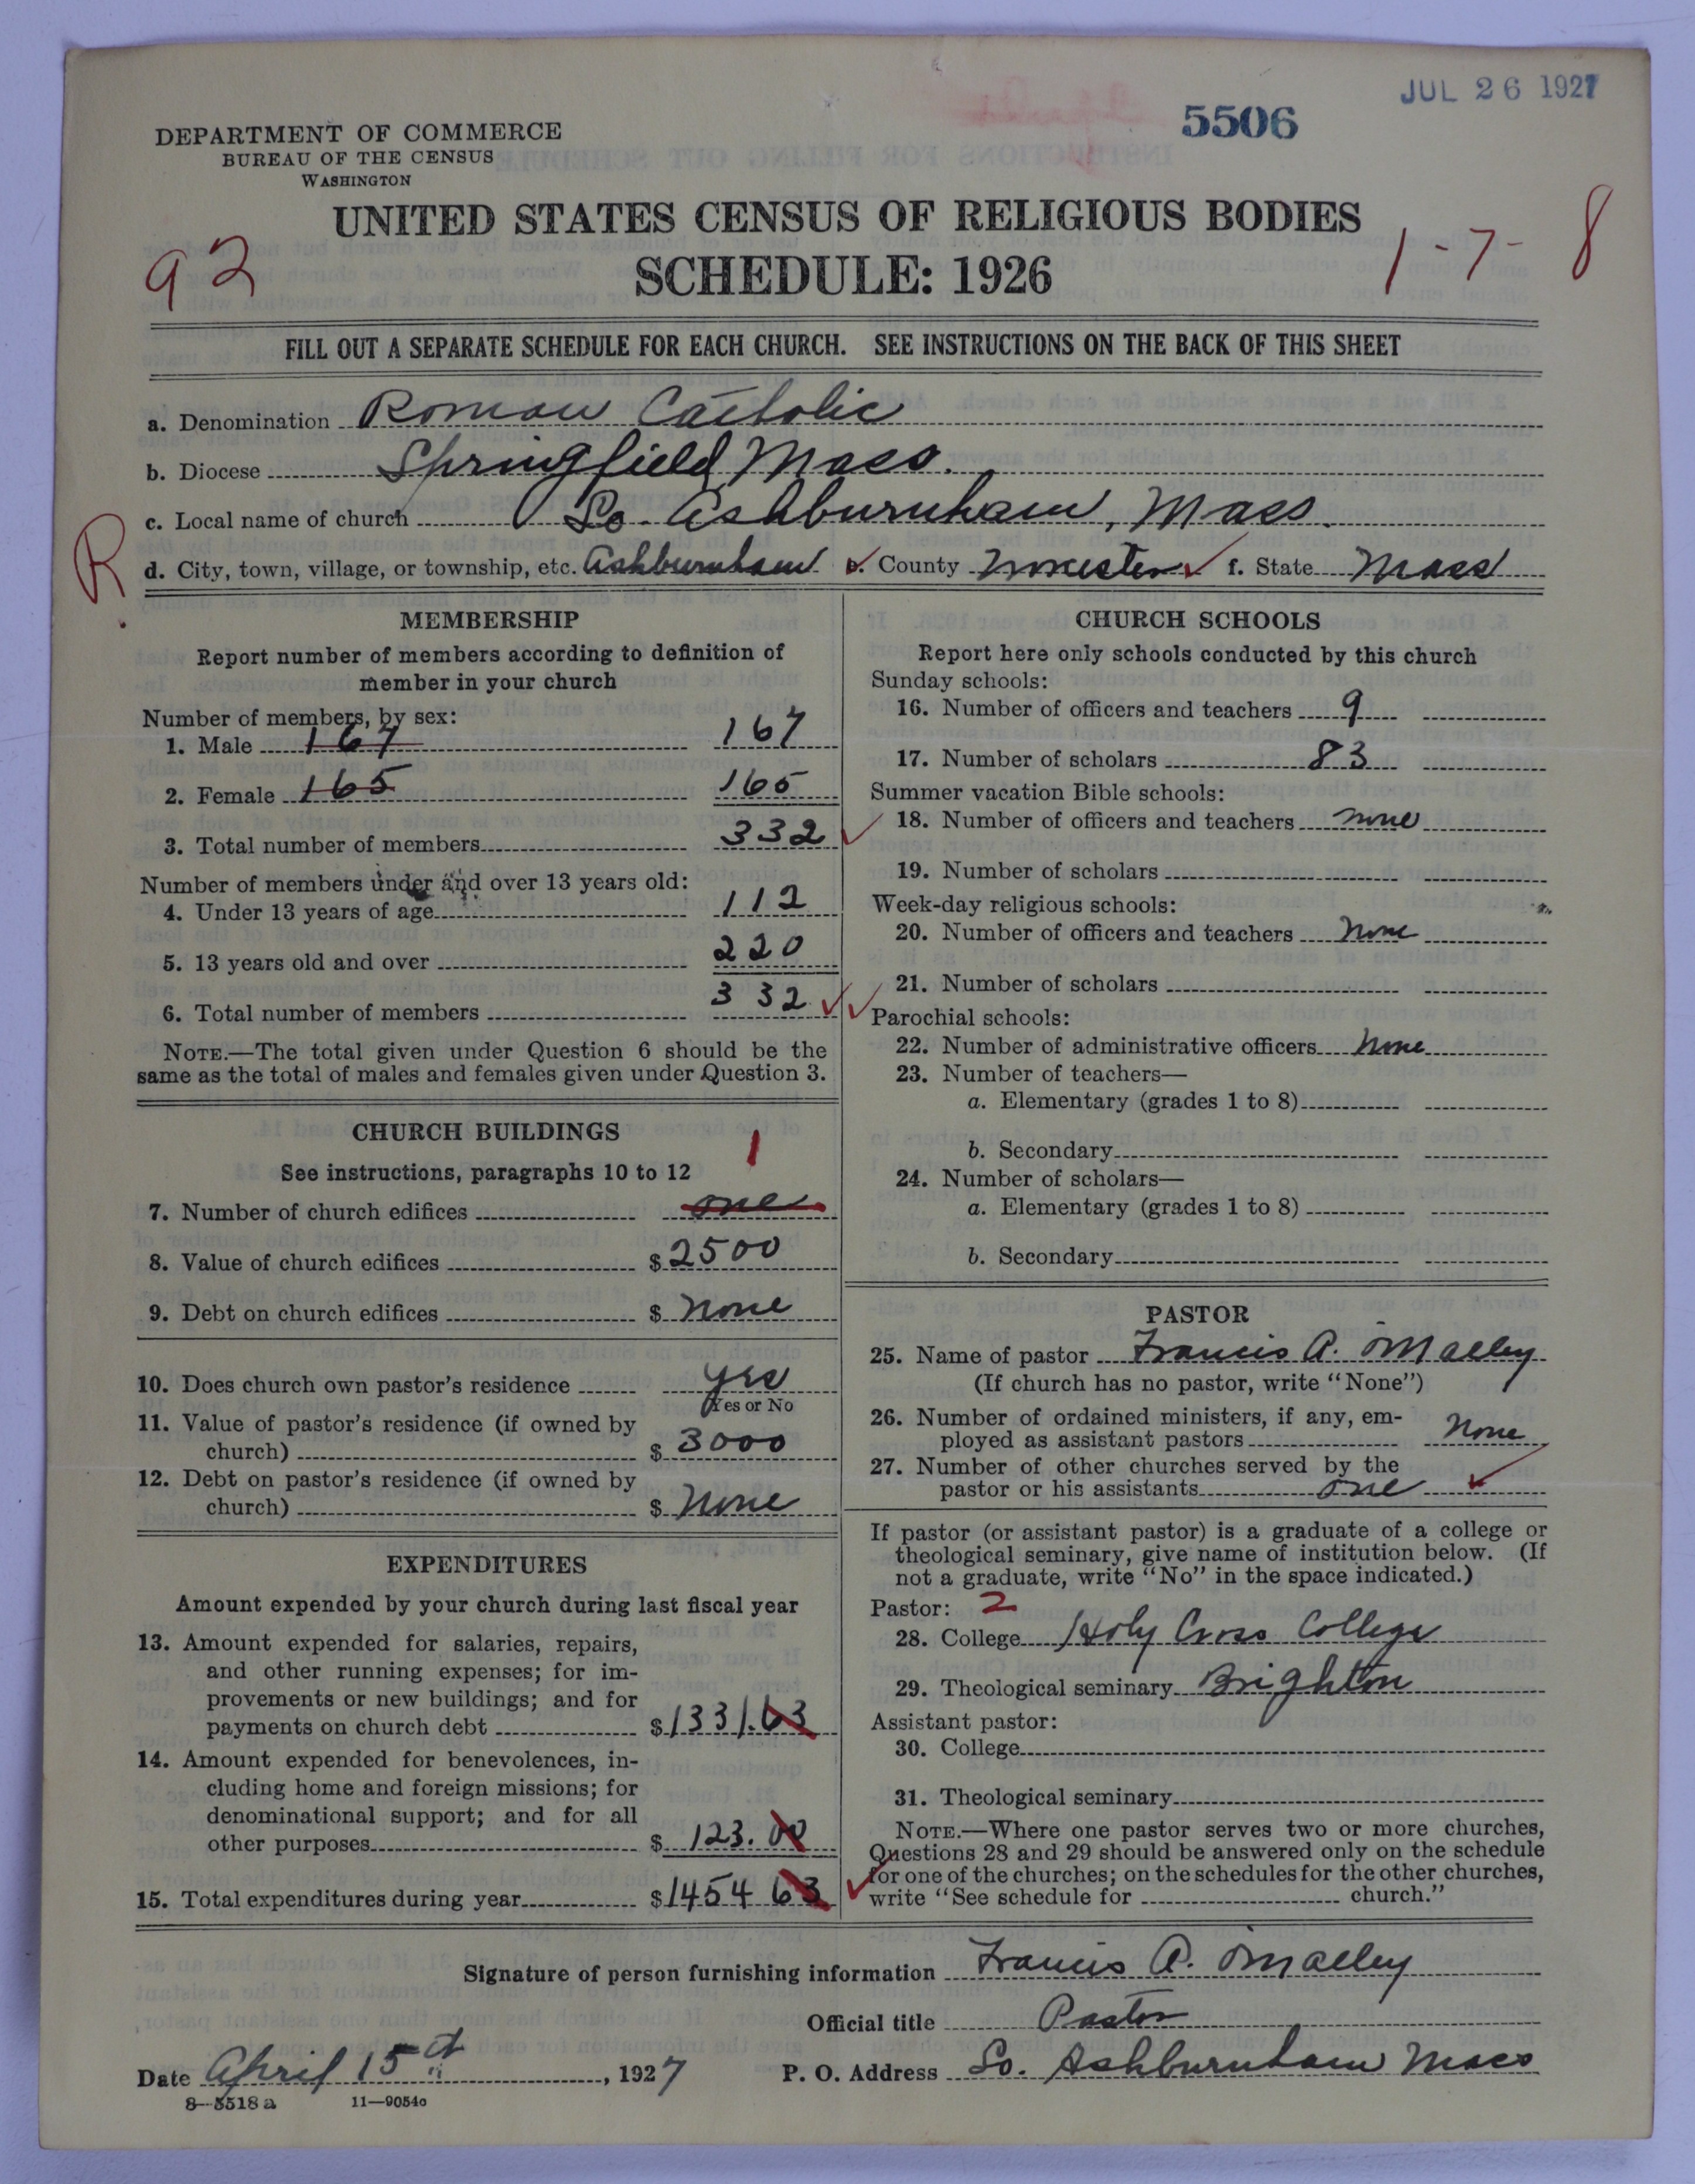 JUL 26 1927
5506
DEPARTMENT OF COMMERCE
BUREAU OF THE CENSUS
WASHINGTON
UNITED STATES CENSUS OF RELIGIOUS BODIES
SCHEDULE: 1926
92
1-7-8
FILL OUT A SEPARATE SCHEDULE FOR EACH CHURCH. SEE INSTRUCTIONS ON THE BACK OF THIS SHEET
a. Denomination Roman Catholic
b. Diocese Springfield, Mass.
c. Local name of church So. Ashburnham, Mass.
R
d. City, town, village, or township, etc. Ashburnham e. County Worcester f. State Mass
MEMBERSHIP
Report number of members according to definition of
member in your church
Number of members, by sex:
1. Male 167 167
2. Female 165 165
3. Total number of members 332
Number of members under and over 13 years old:
4. Under 13 years of age 112
5. 13 years old and over 220
6. Total number of members 332
NOTE.—The total given under Question 6 should be the
same as the total of males and females given under Question 3.
CHURCH BUILDINGS
See instructions, paragraphs 10 to 12
1
7. Number of church edifices one
8. Value of church edifices $ 2500
9. Debt on church edifices $ none
10. Does church own pastor's residence yes
Yes or No
11. Value of pastor's residence (if owned by
church) $ 3000
12. Debt on pastor's residence (if owned by
church) $ none
EXPENDITURES
Amount expended by your church during last fiscal year
13. Amount expended for salaries, repairs,
and other running expenses; for im-
provements or new buildings; and for
payments on church debt $ 1331.63
14. Amount expended for benevolences, in-
cluding home and foreign missions; for
denominational support; and for all
other purposes $ 123.00
15. Total expenditures during year $ 1454 63
CHURCH SCHOOLS
Report here only schools conducted by this church
Sunday schools:
16. Number of officers and teachers 9
17. Number of scholars 83
Summer vacation Bible schools:
18. Number of officers and teachers none
19. Number of scholars
Week-day religious schools:
20. Number of officers and teachers none
21. Number of scholars
Parochial schools:
22. Number of administrative officers none
23. Number of teachers—
a. Elementary (grades 1 to 8)
b. Secondary
24. Number of scholars—
a. Elementary (grades 1 to 8)
b. Secondary
PASTOR
25. Name of pastor Francis A. O'Malley
(If church has no pastor, write "None")
26. Number of ordained ministers, if any, em-
ployed as assistant pastors none
27. Number of other churches served by the
pastor or his assistants one
If pastor (or assistant pastor) is a graduate of a college or
theological seminary, give name of institution below. (If
not a graduate, write "No" in the space indicated.)
Pastor: 2
28. College Holy Cross College
29. Theological seminary Brighton
Assistant pastor:
30. College
31. Theological seminary
NOTE.—Where one pastor serves two or more churches,
Questions 28 and 29 should be answered only on the schedule
for one of the churches; on the schedules for the other churches,
write "See schedule for church."
Signature of person furnishing information Francis A. O'Malley
Official title Pastor
Date April 15th, 1927 P. O. Address So. Ashburnham Mass
8—5518 a 11—9054c